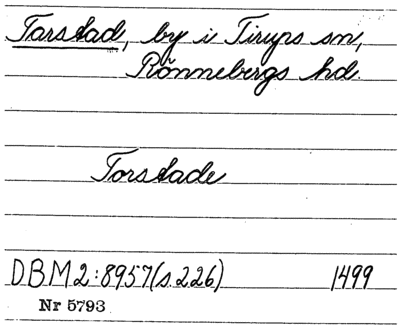 Tarstad, by i Tirups sn,
Rönnebergs hd.
Torstade
DBM 2:8957(s.226) 1499
Nr 5793